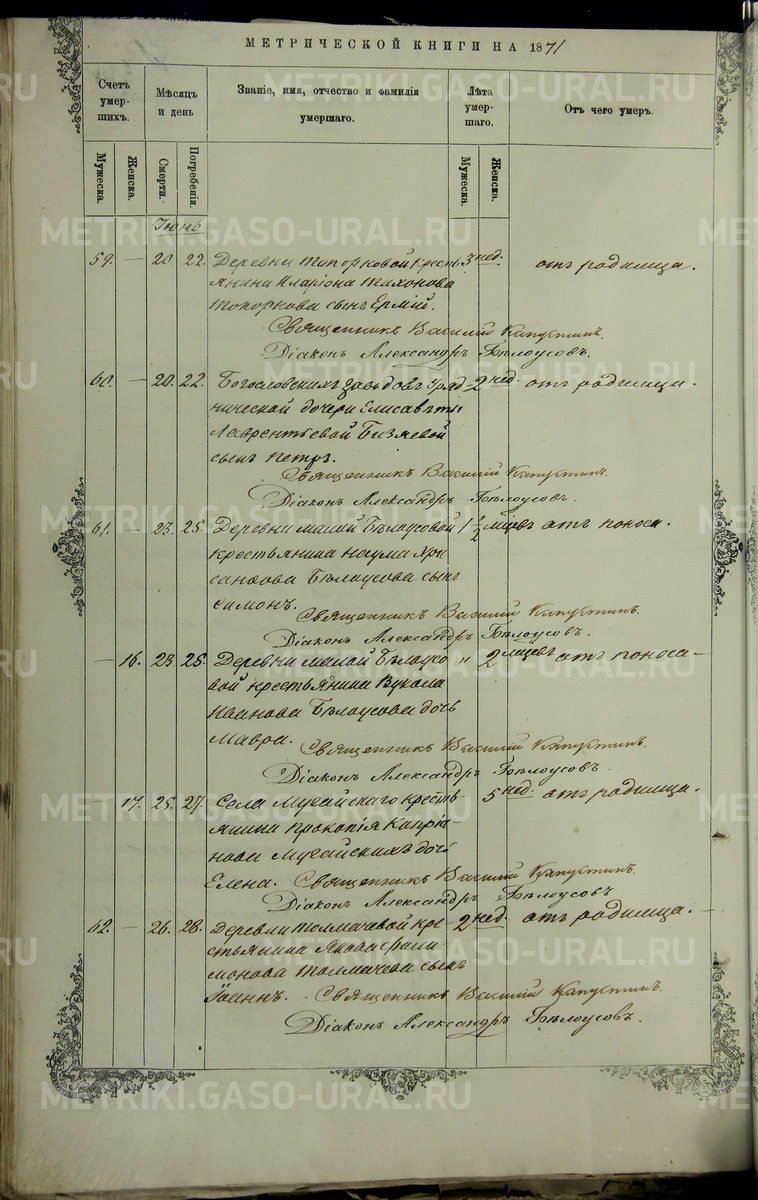 МЕТРИЧЕСКОЙ КНИГИ НА 1871
Счетъ умер-шихъ.
Мѣсяцъ и день
Званіе, имя, отчество и фамилія умершаго.
Лѣта умер-шаго.
Отъ чего умеръ.
Мужеска. Женска. Смерти. Погребенія. Мужеска. Женска.
Іюнь
59. — 20 22. Деревни Топорковой кресть- 3 нед. отъ родимца.
янина Иларіона Тихонова
Топоркова сынъ Ермій.
Священникъ Василій Капустинъ.
Діаконъ Александръ Бѣлоусовъ.
60. — 20. 22. Богословскихъ заводовъ уряд- 2 нед. отъ родимца.
нической дочери Елисаветы
Лаврентьевой Бизяевой
сынъ Петръ.
Священникъ Василій Капустинъ.
Діаконъ Александръ Бѣлоусовъ.
61. — 23. 25. Деревни малой Бѣлоусовой 1½ мѣсц. отъ поноса.
крестьянина Наума Хри
санфова Бѣлоусова сынъ
Симонъ.
Священникъ Василій Капустинъ.
Діаконъ Александръ Бѣлоусовъ.
— 16. 23. 25. Деревни малой Бѣлоусо " 2 мѣсц. отъ поноса —
вой крестьянина Вукола
Иванова Бѣлоусова дочь
Мавра.
Священникъ Василій Капустинъ.
Діаконъ Александръ Бѣлоусовъ.
— 17. 25. 27. Села Мугайскаго кресть- 5 нед. отъ родимца.
янина Прокопія Кипрія-
нова Мугайскихъ дочь
Елена. Священникъ Василій Капустинъ.
Діаконъ Александръ Бѣлоусовъ
62. — 26. 28. Деревни Толмачевой кре 2 нед. отъ родимца.
стьянина Якова Фили
монова Толмачева сынъ
Іоаннъ. Священникъ Василій Капустинъ.
Діаконъ Александръ Бѣлоусовъ.
METRIKI.GASO-URAL.RU